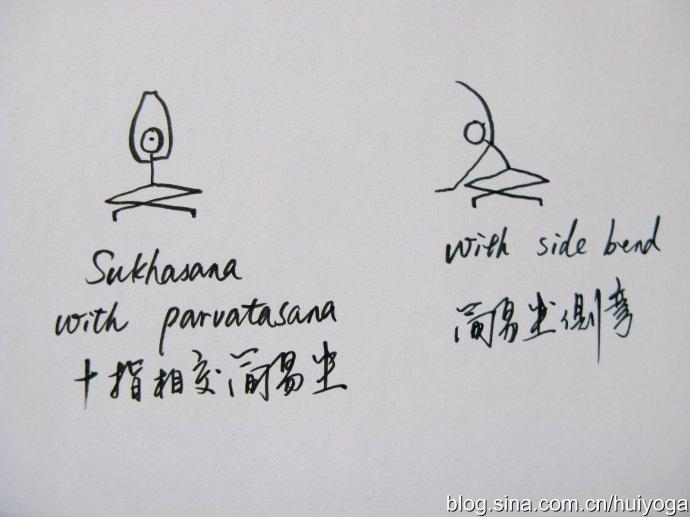 Sukhasana
with parvatasana
十指相交简易坐
with side bend
简易坐侧弯
blog.sina.com.cn/huiyoga